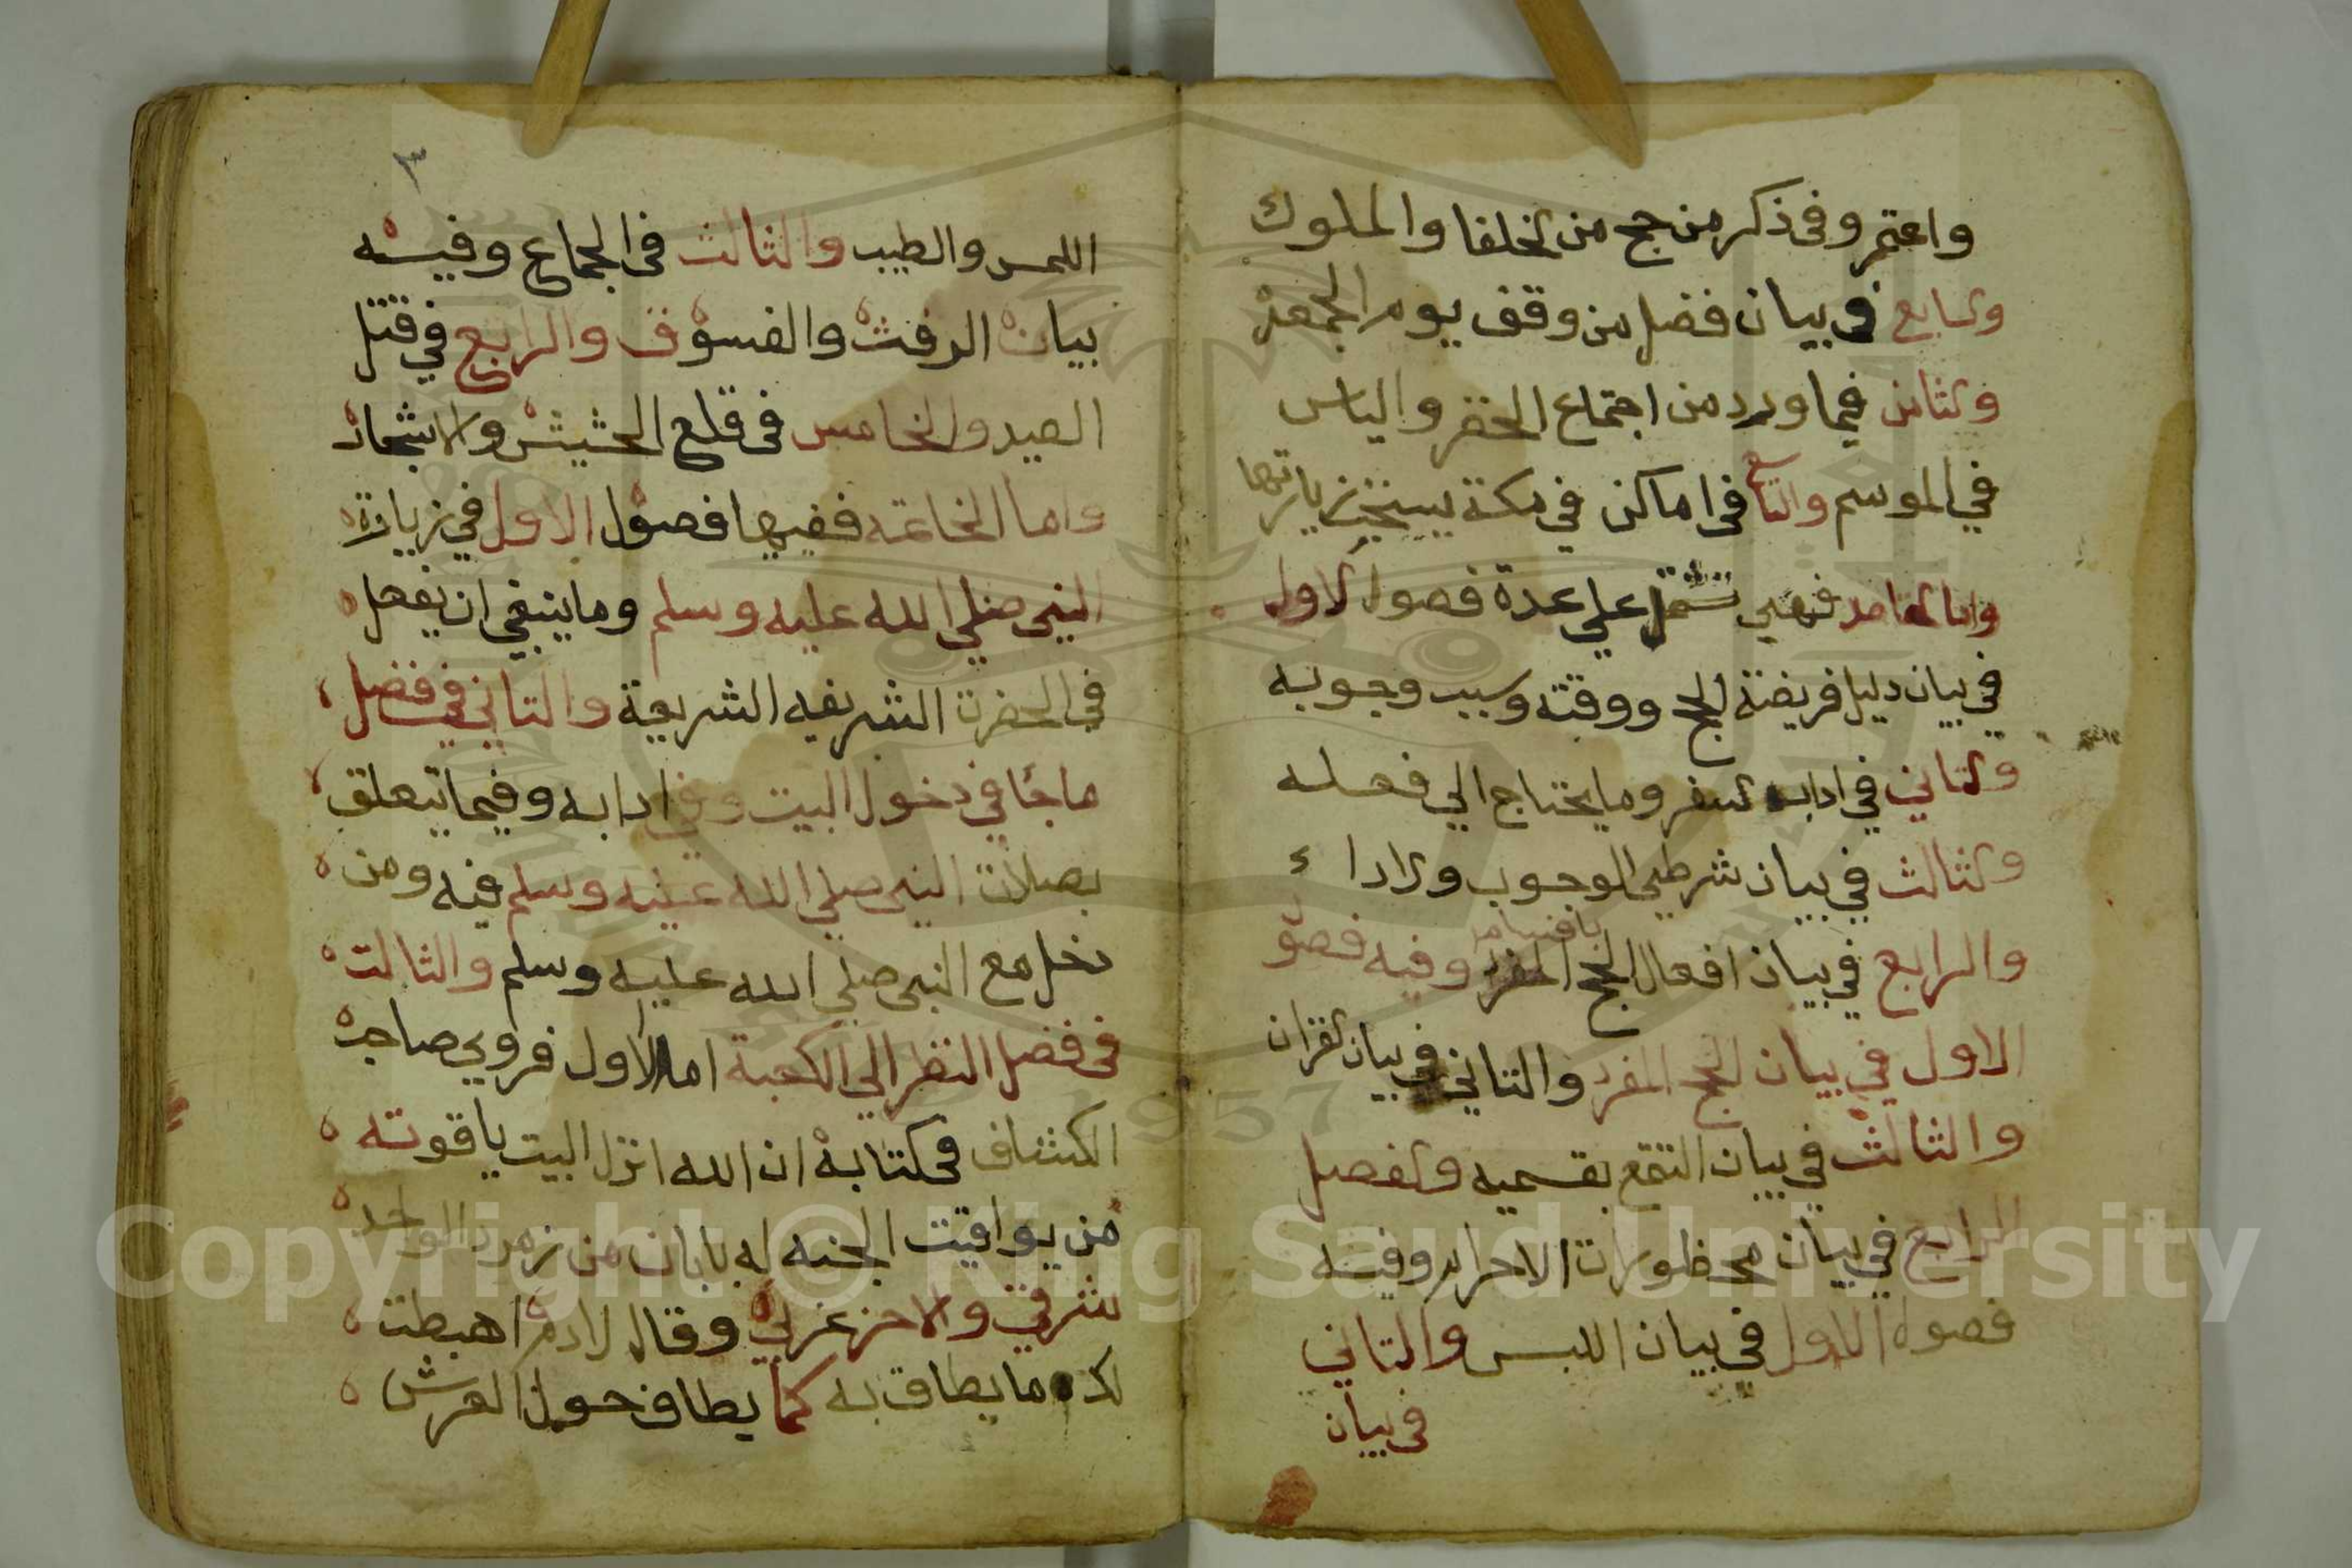 واعتمر وفى ذكر من حج من الخلفا والملوك
والسابع فى بيان فضل من وقف يوم الجمعة
والثامن فيما ورد من اجتماع الخضر والياس
في الموسم والتاسع فى اماكن في مكة يستحب زيارتها
واما المقاصد فهي تشتمل علي عدة فصول الاول
في بيان دليل فريضة الحج ووقته وسبب وجوبه
والتاني في اداب السفر وما يحتاج الي فعله
والثالث في بيان شرطي الوجوب والاداء
والرابع في بيان افعال الحج المفرد وفيه فصو
الاول في بيان الحج المفرد والتاني في بيان القران
والثالث في بيان التمتع بقسميه والفصل
الرابع في بيان محظورات الاحرام وفيه
فصول الاول في بيان اللبس والتاني
فى بيان
٣
اللمس والطيب والثالث فى الجماع وفيه
بيان الرفث والفسوق والرابع في قتل
الصيد والخامس فى قلع الحشيش والاشجار
واما الخاتمه ففيها فصول الاول في زيارة
النبى صلي الله عليه وسلم وما ينبغي ان يفعل
في الحضرة الشريفه الشريعة والتاني في فضل
ما جا في دخول البيت وفي ادابه وفيما يتعلق
بصلات النبى صلي الله عليه وسلم فيه ومن
دخل مع النبى صلي الله عليه وسلم والثالت
فى فضل النظر الي الكعبة اما الاول فروي صاحب
الكشاف فى كتابه ان الله انزل البيت ياقوته
من يواقيت الجنه له بابان من زمرد الواحد
شرقي والاخر غربي وقال لادم اهبطت
لك ما يطاف به كما يطاف حول العرش
Copyright © King Saud University
1957